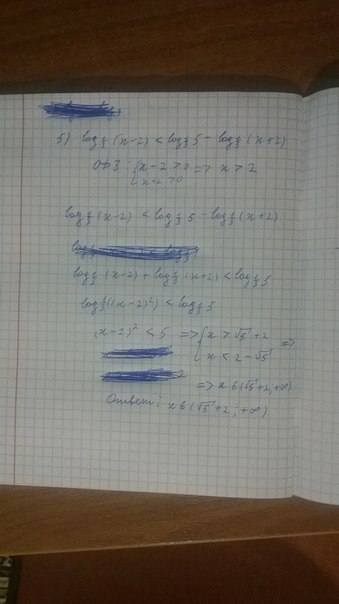 5) log⅓(x-2) < log⅓5 - log⅓(x+2)
ОДЗ: { x-2 > 0 => x > 2
{ x+2 > 0
log⅓(x-2) < log⅓5 - log⅓(x+2)
log⅓(x-2) + log⅓(x+2) < log⅓5
log⅓((x-2)²) < log⅓5
(x-2)² < 5 => { x > √5+2
{ x < 2-√5 =>
=> x ∈ (√5+2; +∞)
Ответ: x ∈ (√5+2; +∞)